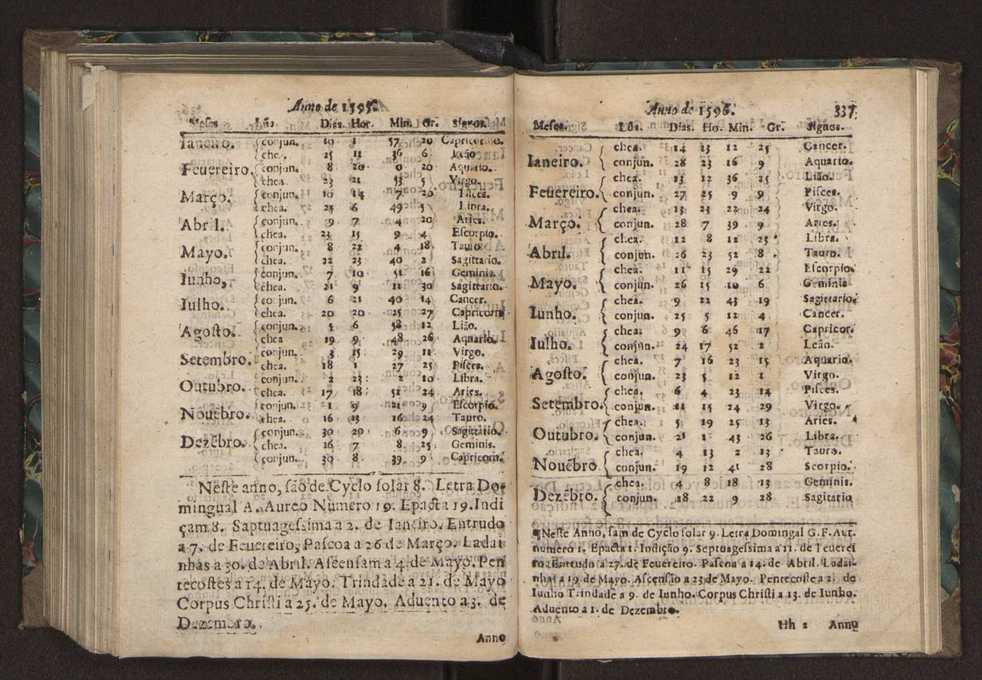 Anno de 1595.
Meses. Lũas. Dias. Hor. Min. Gr. Signos.
Ianeiro. conjun. 10 1 57 20 Capricorno.
chea. 25 11 36 6 Leão
Feuereiro. conjun. 8 20 0 20 Aquario.
chea. 23 21 53 5 Virgo.
Março. conjun. 10 14 7 20 Pisces.
chea. 25 6 49 5 Libra.
Abril. conjun. 9 7 4 20 Aries.
chea. 23 15 9 4 Escorpio.
Mayo. conjun. 8 22 4 18 Tauro
chea. 22 23 40 2 Sagittario.
Iunho, conjun. 7 10 51 16 Geminis.
chea. 21 9 11 30 Sagittario.
Iulho. conjun. 6 21 40 14 Cancer.
chea. 20 20 25 27 Capricorn
Agosto. conjun. 5 6 58 12 Lião.
chea 19 9 48 26 Aquario.
Setembro. conjun. 3 15 29 11 Virgo.
chea. 18 1 27 25 Pisces.
Outubro. conjun. 2 23 2 10 Libra.
chea. 17 18 51 24 Aries.
Nouebro. conjun. 1 9 21 9 Escorpio.
chea. 16 13 16 24 Tauro.
Dezẽbro. conjun. 30 20 6 9 Sagittario.
chea. 16 7 8 25 Geminis.
conjun. 30 8 39 9 Capricorn.
Neste anno, são de Cyclo solar 8. Letra Do-
mingual A. Aureo Numero 19. Epacta 19. Indi
çam 8. Saptuagessima a 2. de Ianeiro. Entrudo
a 7. de Feuereiro, Pascoa a 26 de Março. Ladai
nhas a 30. de Abril. Ascensam a 4. de Mayo. Pen
tecostes a 14. de Mayo. Trindade a 21. de Mayo
Corpus Christi a 25. de Mayo. Aduento a 3. de
Dezembro.
Anno
Anno de 1596. 337
Meses. Lũas. Dias. Ho. Min. Gr. Signos.
chea. 14 23 12 25 Cancer.
Ianeiro. conjun. 28 23 16 9 Aquario.
chea. 13 12 36 25 Lião.
Feuereiro. conjun. 27 25 9 9 Pisces.
chea. 13 23 22 24 Virgo.
Março. conjun. 28 7 39 9 Aries.
chea. 12 8 12 25 Libra.
Abril. conjun. 26 23 52 8 Tauro.
chea. 11 15 29 22 Escorpio.
Mayo. conjun. 26 15 10 6 Geminis
chea. 9 22 43 19 Sagittario.
Iunho. conjun. 25 5 12 4 Cancer.
chea. 9 6 46 17 Capricor.
Iulho. conjun. 24 17 52 2 Leão.
chea. 7 16 23 15 Aquario.
Agosto. conjun. 23 5 12 1 Virgo.
chea. 6 4 23 14 Pisces.
Setembro. conjun. 21 15 24 29 Virgo.
chea. 5 19 25 13 Aries.
Outubro. conjun. 21 1 43 26 Libra.
chea. 4 13 2 13 Tauro.
Nouẽbro conjun. 19 12 41 28 Scorpio.
chea. 4 8 18 13 Geminis.
Dezẽbro. conjun. 18 22 9 28 Sagitario
¶Neste Anno, sam de Cyclo solar 9. Letra Domingal G. F. Aur.
numero 1. Epacta 1. Indição 9. Septuagessima a 11. de Feuerei
ro. Entrudo a 27. de Feuereiro. Pascoa a 14. de Abril. Ladai-
nhas a 19 de Mayo. Ascensão a 23 de Mayo. Pentecoste a 2. de
Iunho Trindade a 9. de Iunho. Corpus Christi a 13. de Iunho.
Aduento a 1. de Dezembro.
Hh 2 Anno